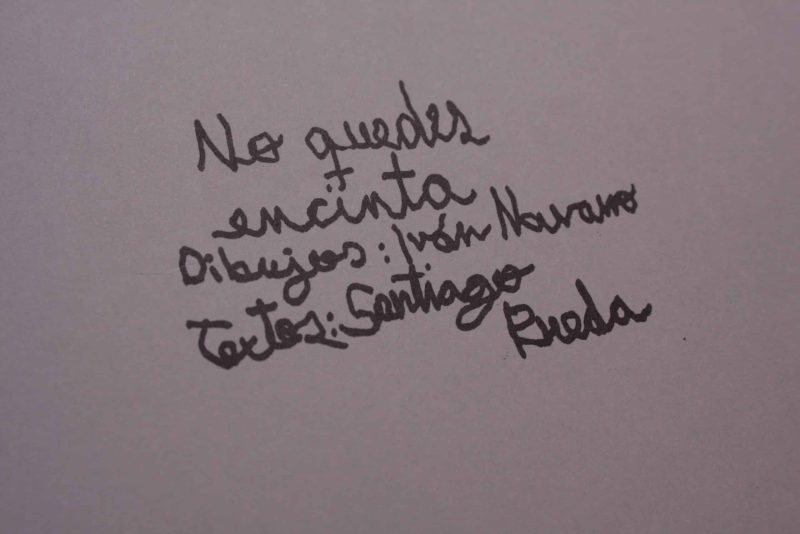 No quedes
encinta
Dibujos: Iván Navarro
Textos: Santiago
Rueda